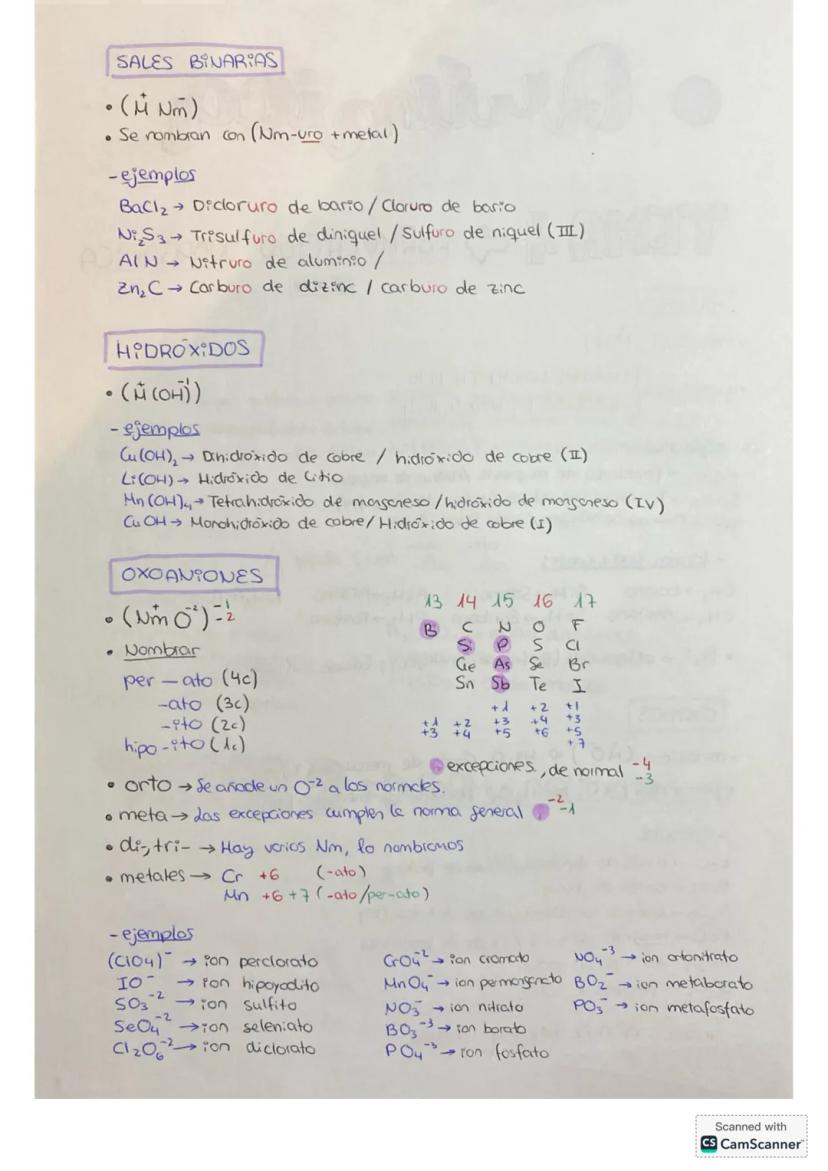 SALES BINARIAS
• (M⁺ Nm⁻)
• Se nombran con (Nm-uro + metal)
- ejemplos
BaCl₂ → Dicloruro de bario / Cloruro de bario
Ni₂S₃ → Trisulfuro de diniquel / Sulfuro de niquel (III)
AlN → Nitruro de aluminio /
Zn₂C → Carburo de dizinc / carburo de zinc
HIDRÓXIDOS
• (M⁺(OH)⁻¹)
- ejemplos
Cu(OH)₂ → Dihidróxido de cobre / hidróxido de cobre (II)
Li(OH) → Hidróxido de Litio
Mn(OH)₄ → Tetrahidróxido de manganeso / hidróxido de manganeso (IV)
CuOH → Monohidróxido de cobre / Hidróxido de cobre (I)
OXOANIONES
• (Nm⁺ O⁻²)⁻¹ ⁻²
• Nombrar
per - ato (4c)
-ato (3c)
-ito (2c)
hipo -ito (1c)
13 14 15 16 17
B C N O F
Si P S Cl
Ge As Se Br
Sn Sb Te I
+1 +2 +1
+1 +2 +3 +4 +3
+3 +4 +5 +6 +5
+7
excepciones, de normal -4 -3
• orto → Se añade un O⁻² a los normales.
• meta → Las excepciones cumplen la norma general, -2 -1
• di-, tri- → Hay varios Nm, lo nombramos
• metales → Cr +6 (-ato)
Mn +6 +7 (-ato/per-ato)
- ejemplos
(ClO4)⁻ → ion perclorato
IO⁻ → ion hipoyodito
SO₃⁻² → ion sulfito
SeO₄⁻² → ion seleniato
Cl₂O₆⁻² → ion diclorato
CrO₄⁻² → ion cromato
MnO₄⁻ → ion permanganato
NO₃⁻ → ion nitrato
BO₃⁻³ → ion borato
PO₄⁻³ → ion fosfato
NO₄⁻³ → ion ortonitrato
BO₂⁻ → ion metaborato
PO₃⁻ → ion metafosfato
Scanned with
CS CamScanner